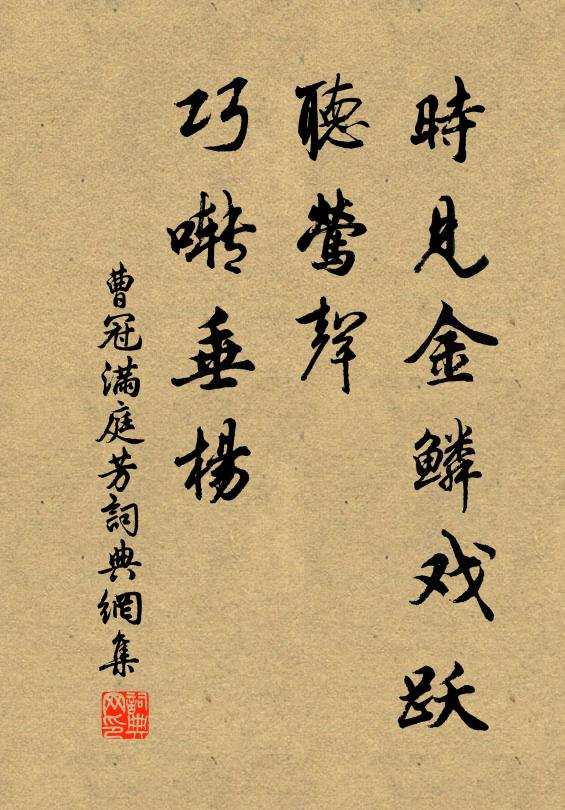 時見金鱗戏跃
聽鶯聲
巧囀垂楊
曹冠滿庭芳詞典網集
詞典网印